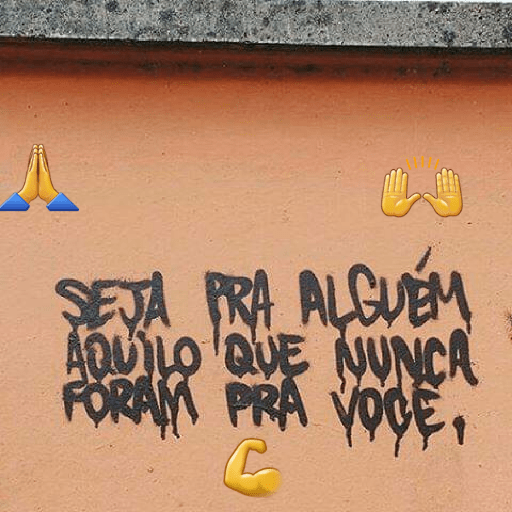 SEJA PRA ALGUÉM
AQUILO QUE NUNCA
FORAM PRA VOCE,